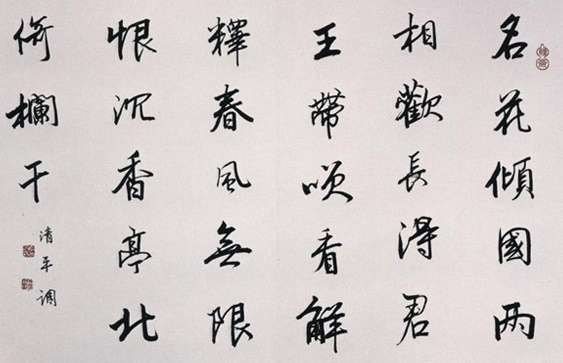 名花傾國两
相歡長得君
王帶咲看解
釋春風無限
恨沉香亭北
倚欄干
清平调